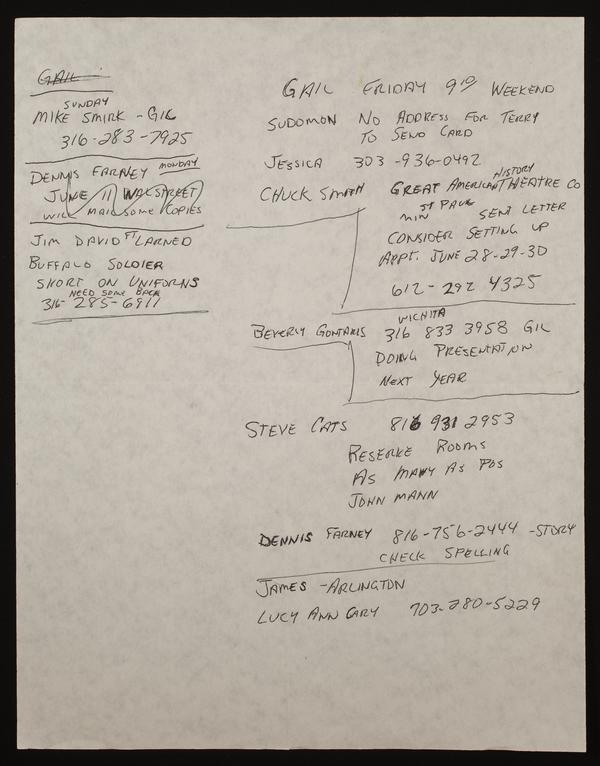 GAIL
SUNDAY
MIKE SMIRK - GIL
316-283-7925
DENNIS FARNEY MONDAY
JUNE 11 WALSTREET
WILL MAIL SOME COPIES
JIM DAVID FT LARNED
BUFFALO SOLDIER
SHORT ON UNIFORNS
NEED SOME BACK
316-285-6911
GAIL FRIDAY 9 10 WEEKEND
SUDOMON NO ADDRESS FOR TERRY
TO SEND CARD
JESSICA 303-936-0492
HISTORY
CHUCK SMITH GREAT AMERICAN THEATRE CO
MIN ST PAUL SENT LETTER
CONSIDER SETTING UP
APPT. JUNE 28-29-30
612-292 4325
WICHITA
BEVERLY GONTARIS 316 833 3958 GIL
DOING PRESENTATION
NEXT YEAR
STEVE CATS 816 931 2953
RESERVE ROOMS
AS MANY AS POS
JOHN MANN
DENNIS FARNEY 816-756-2444 -STORY
CHECK SPELLING
JAMES -ARLINGTON
LUCY ANN CARY 703-280-5229